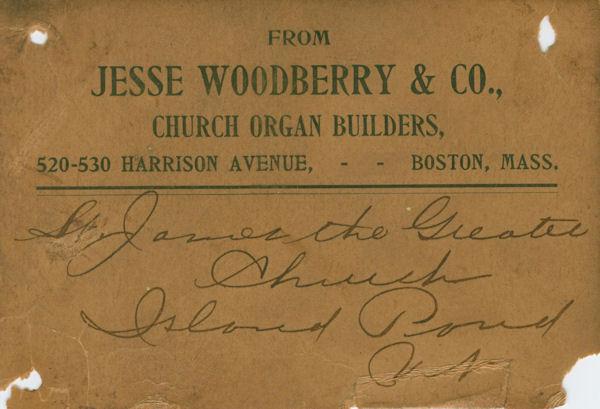 FROM
JESSE WOODBERRY & CO.,
CHURCH ORGAN BUILDERS,
520-530 HARRISON AVENUE, - - BOSTON, MASS.
St. James the Greater
Church
Island Pond
Vt